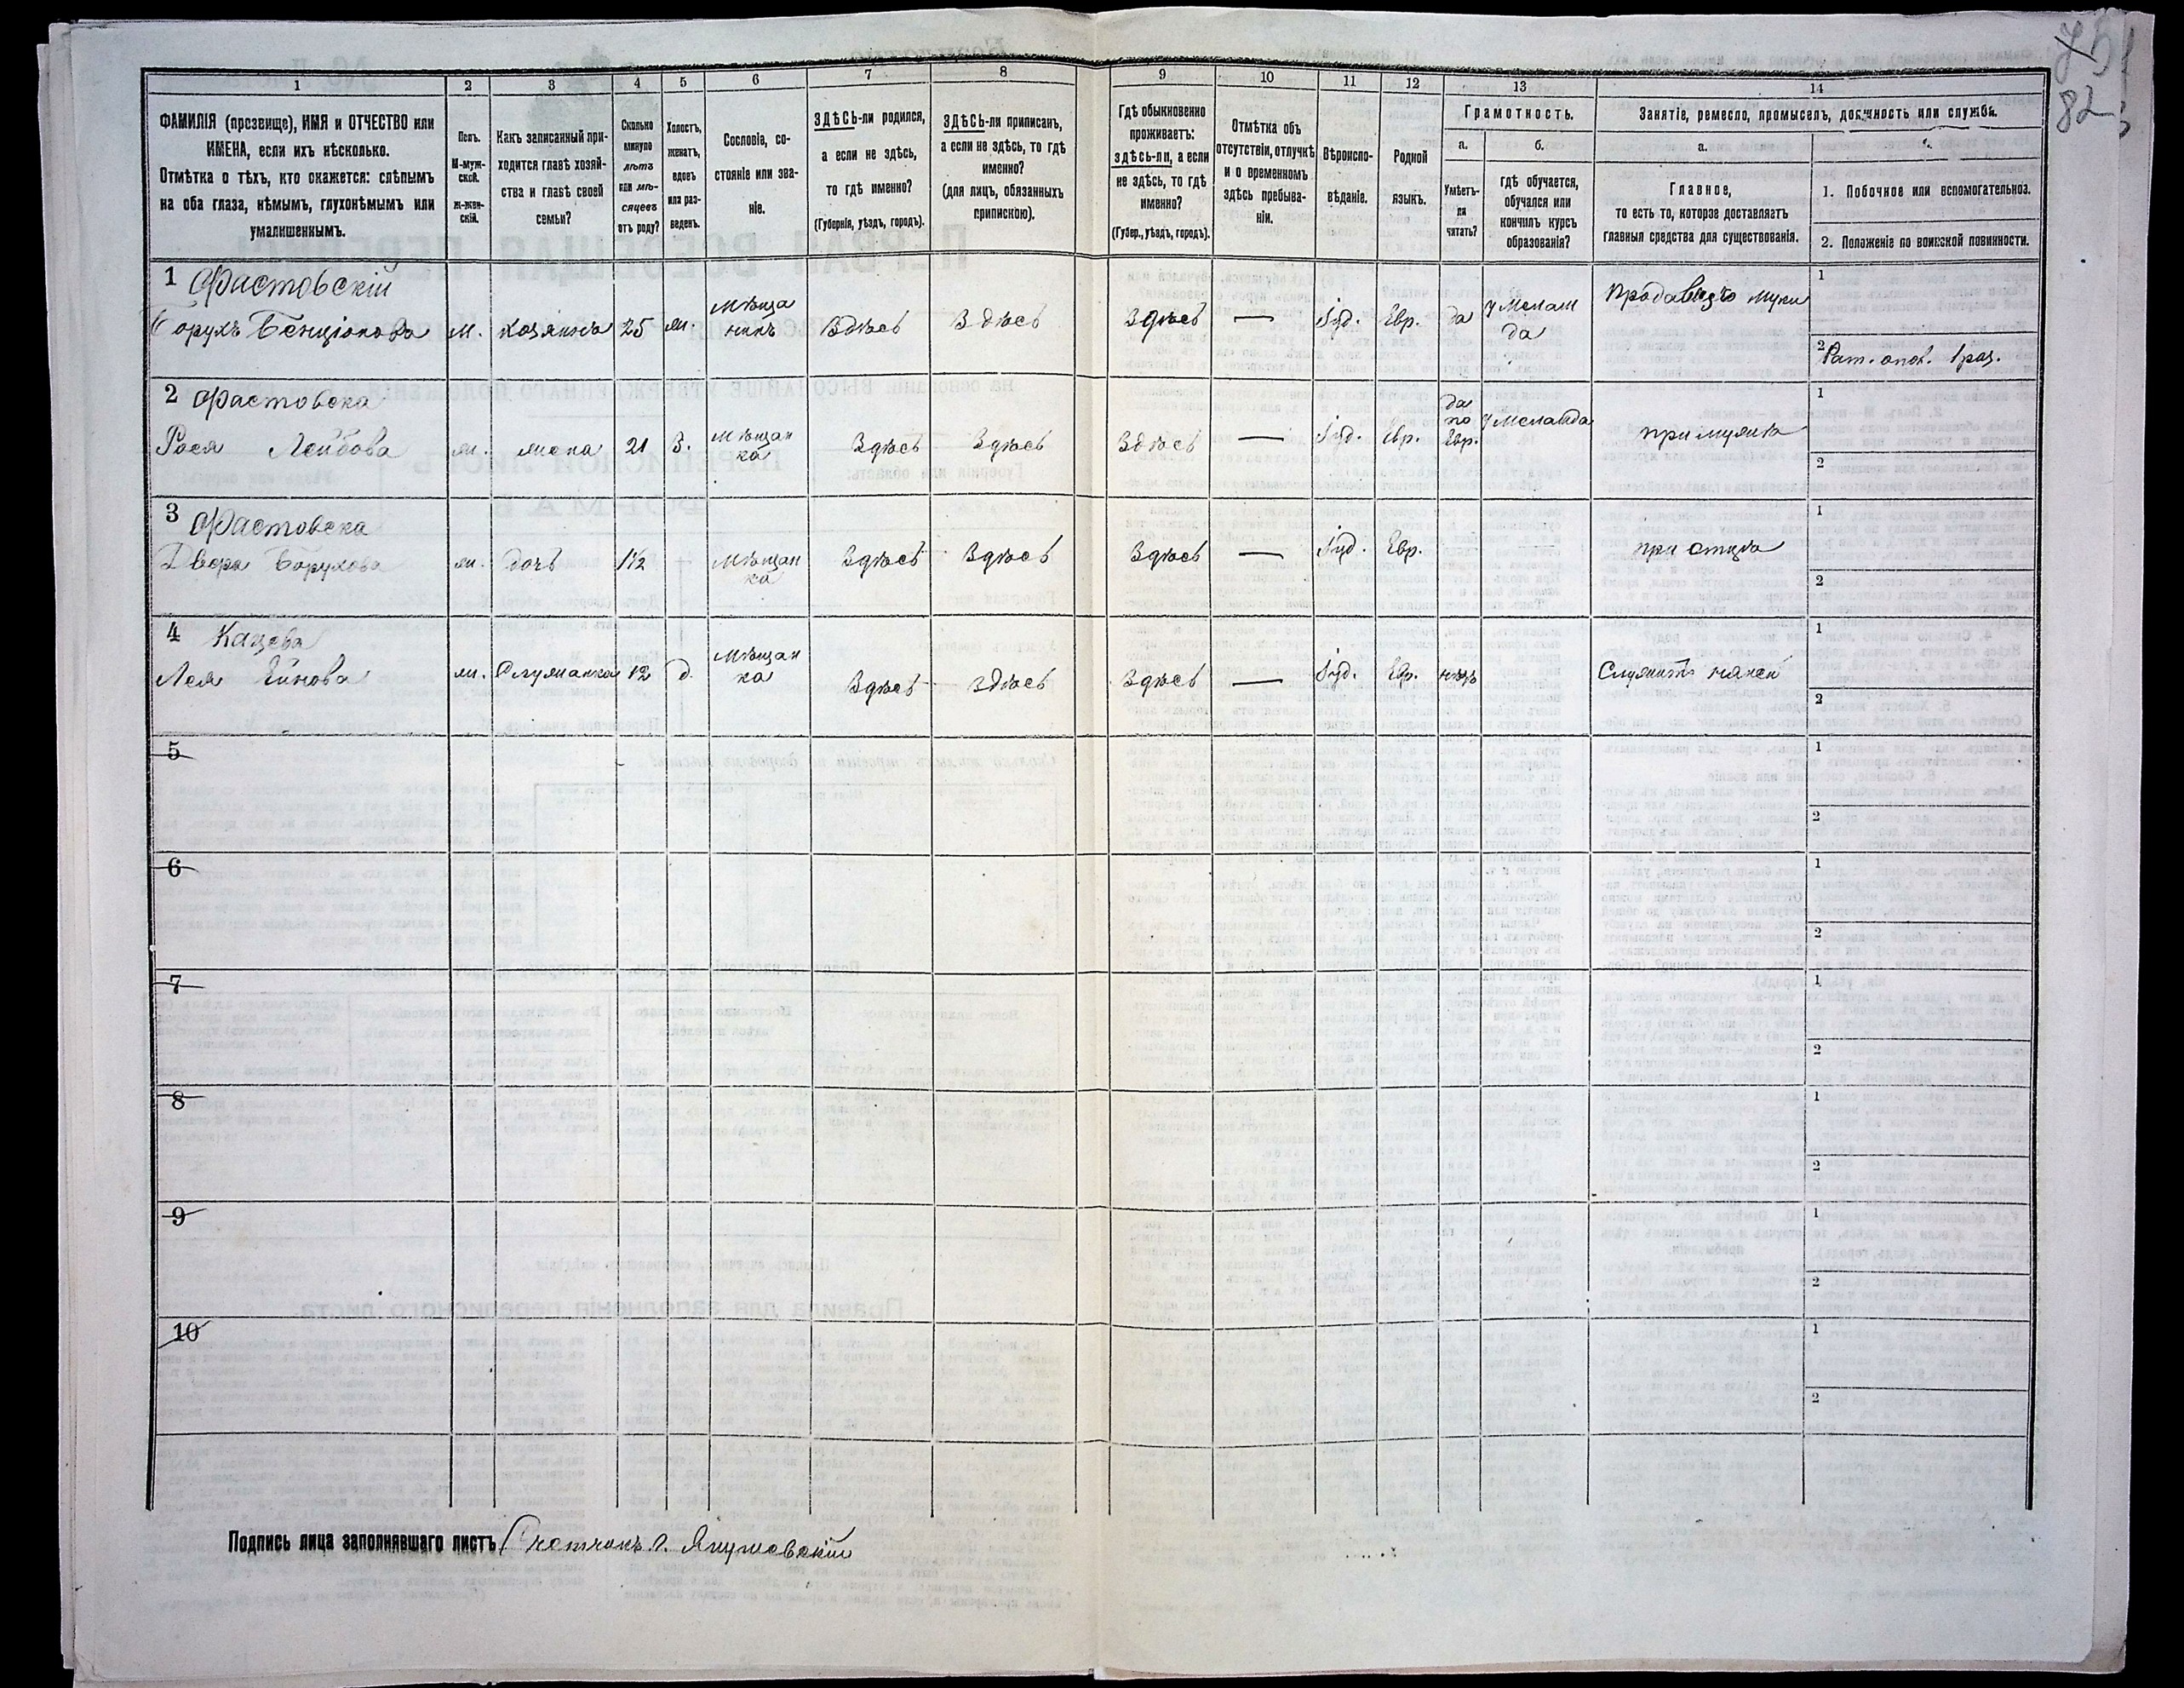 751
82
1 2 3 4 5 6 7 8 9 10 11 12 13 14
ФАМИЛІЯ (прозвище), ИМЯ и ОТЧЕСТВО или
ИМЕНА, если ихъ нѣсколько.
Отмѣтка о тѣхъ, кто окажется: слѣпымъ
на оба глаза, нѣмымъ, глухонѣмымъ или
умалишеннымъ.
Полъ.
М-муж-
ской.
ж-жен-
скій.
Какъ записанный при-
ходится главѣ хозяй-
ства и главѣ своей
семьи?
Сколько
минуло
лѣтъ
или мѣ-
сяцевъ
отъ роду?
Холостъ,
женатъ,
вдовъ
или раз-
веденъ.
Сословіе, со-
стояніе или зва-
ніе.
ЗДѢСЬ-ли родился,
а если не здѣсь,
то гдѣ именно?
(Губернія, уѣздъ, городъ).
ЗДѢСЬ-ли приписанъ,
а если не здѣсь, то гдѣ
именно?
(для лицъ, обязанныхъ
припискою).
Гдѣ обыкновенно
проживаетъ:
здѣсь-ли, а если
не здѣсь, то гдѣ
именно?
(Губер., уѣздъ, городъ).
Отмѣтка объ
отсутствіи, отлучкѣ
и о временномъ
здѣсь пребыва-
ніи.
Вѣроиспо-
вѣданіе.
Родной
языкъ.
Грамотность.
а.
Умѣетъ-
ли
читать?
б.
гдѣ обучается,
обучался или
кончилъ курсъ
образованія?
Занятіе, ремесло, промыселъ, должность или служба.
а.
Главное,
то есть то, которое доставляетъ
главныя средства для существованія.
1. Побочное или вспомогательное.
2. Положеніе по воинской повинности.
1 Фастовскій
Борухъ Бенціонова м. хозяинъ 25 ж. Мѣща
нинъ Здѣсь Здѣсь Здѣсь — Іуд. Евр. да у Мелам
да Продавецъ муки
1
2 Рат. опол. 1 раз.
2 Фастовска
Рося Лейбова ж. жена 21 З. Мѣщан
ка Здѣсь Здѣсь Здѣсь — Іуд. Евр. да
по
Евр. у Меламда при мужѣ
1
2
3 Фастовска
Двора Борухова ж. дочь 1½ Мѣщан
ка Здѣсь Здѣсь Здѣсь — Іуд. Евр. при отцѣ
1
2
4 Кацева
Лея ж. Служанка 12 д. Мѣщан
ка Здѣсь Здѣсь Здѣсь — Іуд. Евр. нѣтъ Служитъ няней
1
2
5
1
2
6
1
2
7
1
2
8
1
2
9
1
2
10
1
2
Подпись лица заполнявшаго листъ Счетчикъ